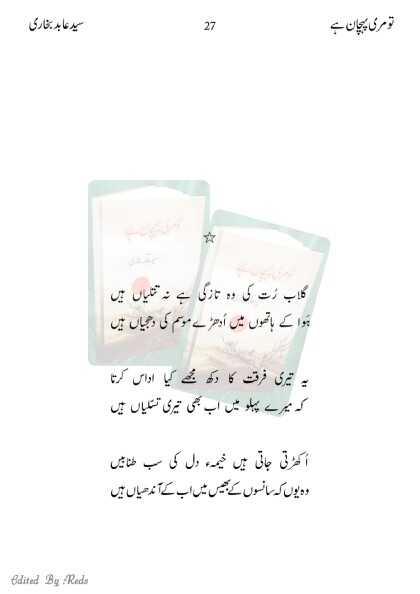 تو مری پہچان ہے 27 سید عابد بخاری
تو مری پہچان ہے
تو مری پہچان ہے
☆
گلاب رُت کی وہ تازگی ہے نہ تتلیاں ہیں
ہَوا کے ہاتھوں میں اُدھڑے موسم کی دھجیاں ہیں
یہ تیری فرقت کا دکھ مجھے کیا اداس کرتا
کہ میرے پہلو میں اب بھی تیری تسلیاں ہیں
اُکھڑتی جاتی ہیں خیمۂ دل کی سب طنابیں
وہ یوں کہ سانسوں کے بھیس میں اب کے آندھیاں ہیں
Edited By Reds